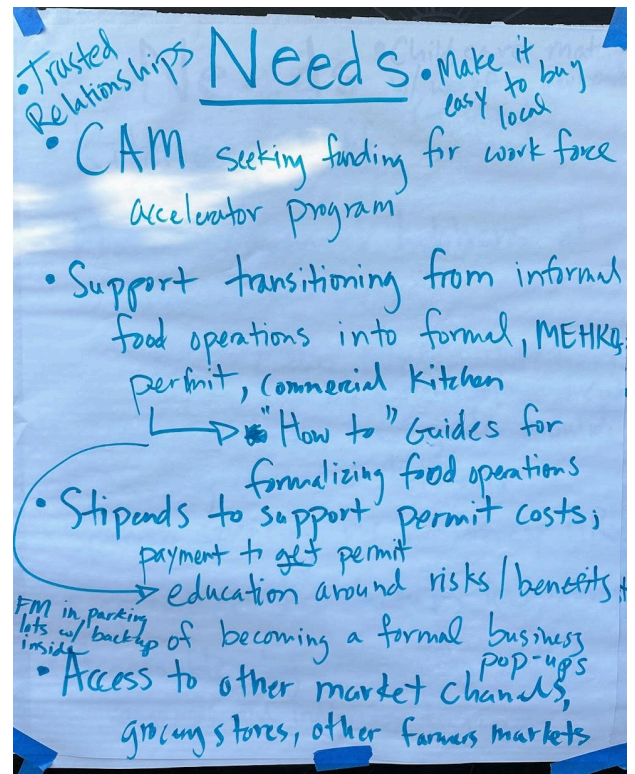 • Trusted Relationships
Needs
• Make it easy to buy local
• CAM seeking funding for work force
accelerator program
• Support transitioning from informal
food operations into formal, MEHKO
permit, commercial kitchen
"How to" Guides for
formalizing food operations
• Stipends to support permit costs;
payment to get permit
education around risks / benefits
FM in parking
lots w/ backup
inside
of becoming a formal business
pop-ups
• Access to other market channels,
grocery stores, other farmers markets